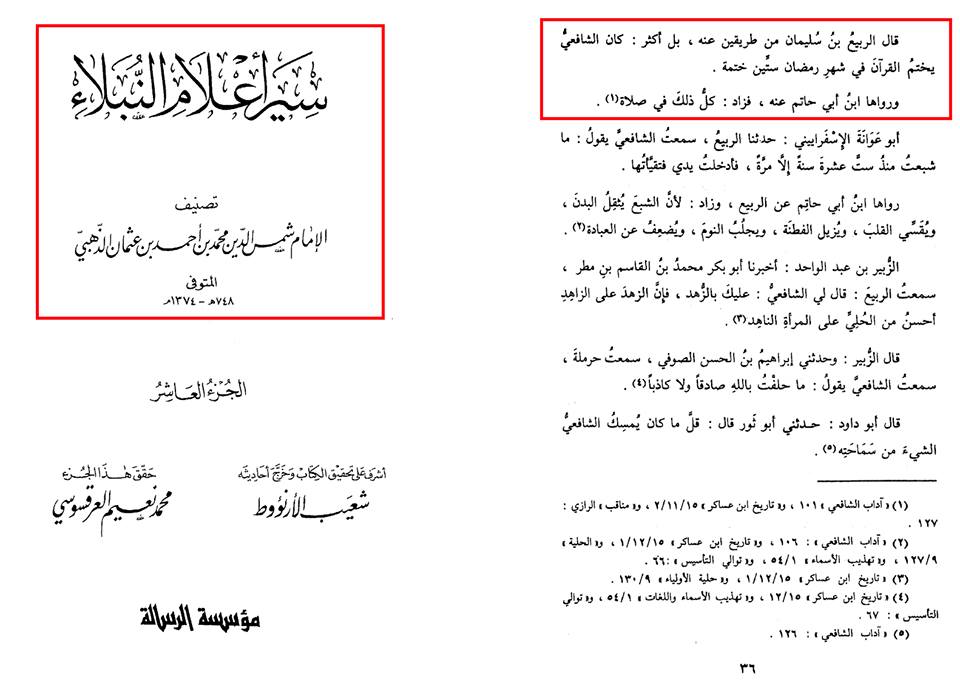 سير أعلام النبلاء
تصنيف
الإمام شمس الدين محمد بن أحمد بن عثمان الذهبي
المتوفى
٧٤٨هـ - ١٣٧٤م
الجزء العاشر
أشرف على تحقيق الكتاب وخرج أحاديثه
شعيب الأرنؤوط
حقق هذا الجزء
محمد نعيم العرقسوسي
مؤسسة الرسالة
قال الربيعُ بنُ سُليمان من طريقين عنه ، بل أكثر : كان الشافعيُّ
يختمُ القرآنَ في شهرِ رمضان ستِّين ختمة .
ورواها ابنُ أبي حاتم عنه ، فزاد : كلُّ ذلكَ في صلاة(١) .
أبو عَوَانَةَ الإِسْفَراييني : حدثنا الربيعُ ، سمعتُ الشافعيَّ يقولُ : ما
شبعتُ منذُ ستَّ عشرةَ سنةً إلَّا مرَّةً ، فأدخلتُ يدي فتقيَّأتُها .
رواها ابنُ أبي حاتِم عن الربيع ، وزاد : لأنَّ الشبعَ يُثقِلُ البدنَ ،
ويُقَسِّي القلبَ ، ويُزيل الفطنَة ، ويجلُبُ النومَ ، ويُضعِفُ عن العبادة(٢) .
الزُّبير بن عبد الواحد : أخبرنا أبو بكر محمدُ بنُ القاسم بنِ مطر ،
سمعتُ الربيعَ : قال لي الشافعيُّ : عليكَ بالزُّهد ، فإنَّ الزهدَ على الزاهِدِ
أحسنُ من الحُليِّ على المرأةِ الناهِد(٣) .
قال الزُّبير : وحدثني إبراهيمُ بنُ الحسن الصوفي ، سمعتُ حرملةَ ،
سمعتُ الشافعيَّ يقولُ : ما حلفْتُ باللهِ صادقاً ولا كاذباً(٤) .
قال أبو داود : حدثني أبو ثَور قال : قلَّ ما كان يُمسِكُ الشافعيُّ
الشيءَ من سَمَاحَتِه(٥) .
(١) « آداب الشافعي » ١٠١ ، و« تاريخ ابن عساكر » ٢/١١/١٥ ، و« مناقب » الرازي :
١٢٧ .
(٢) « آداب الشافعي » : ١٠٦ ، و« تاريخ ابن عساكر » ١/١٢/١٥ ، و« الحلية »
١٢٧/٩ ، و« تهذيب الأسماء » ٥٤/١ ، و« توالي التأسيس » :٦٦ .
(٣) « تاريخ ابن عساكر » ١/١٢/١٥ ، و« حلية الأولياء » ١٣٠/٩ .
(٤) « تاريخ ابن عساكر » ١٢/١٥ ، و« تهذيب الأسماء واللغات » ٥٤/١ ، و« توالي
التأسيس » : ٦٧ .
(٥) « آداب الشافعي » : ١٢٦ .
٣٦